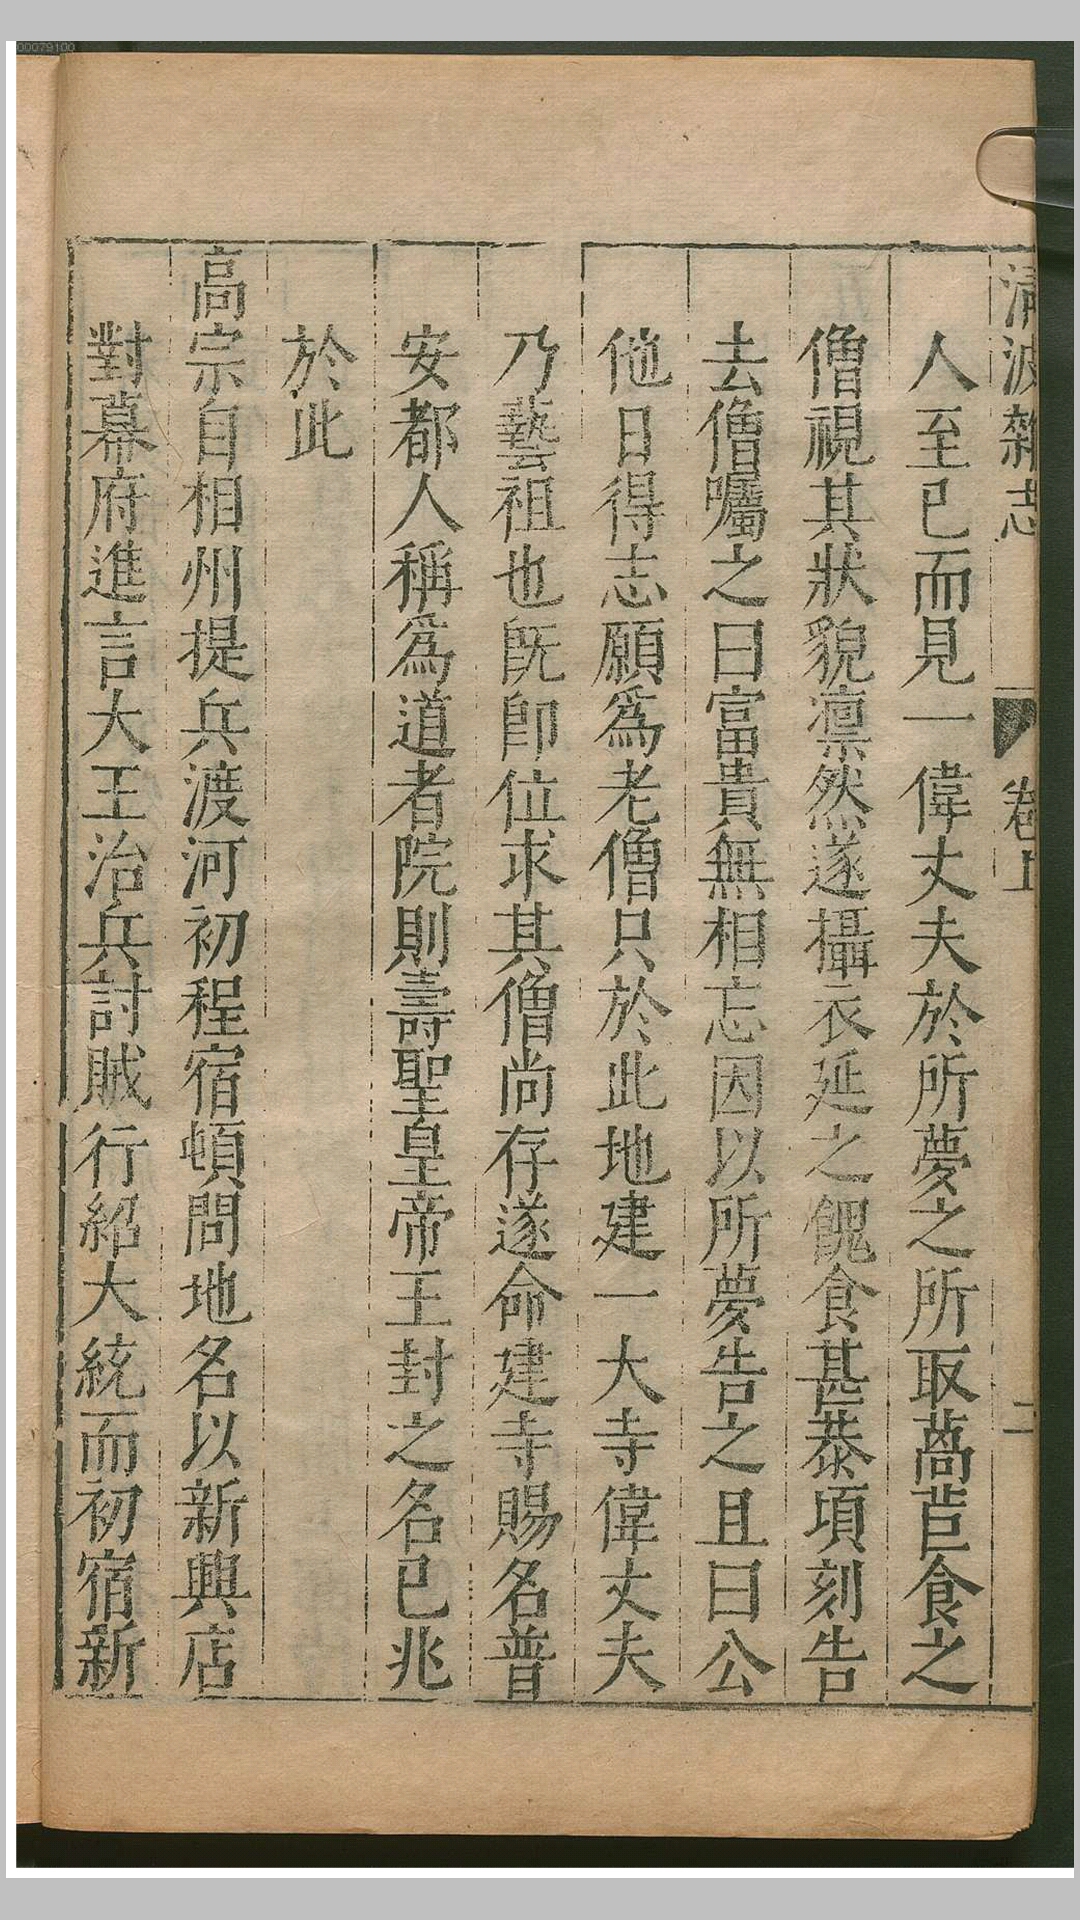 00079100
清波雜志 卷上 二
人至已而見一偉丈夫於所夢之所取萵苣食之
僧視其狀貌凛然遂攝衣延之餽食甚恭頃刻告
去僧囑之曰富貴無相忘因以所夢告之且曰公
他日得志願爲老僧只於此地建一大寺偉丈夫
乃藝祖也旣即位求其僧尚存遂命建寺賜名普
安都人稱爲道者院則壽聖皇帝王封之名已兆
於此
高宗自相州提兵渡河初程宿頓問地名以新興店
對幕府進言大王治兵討賊行紹大統而初宿新